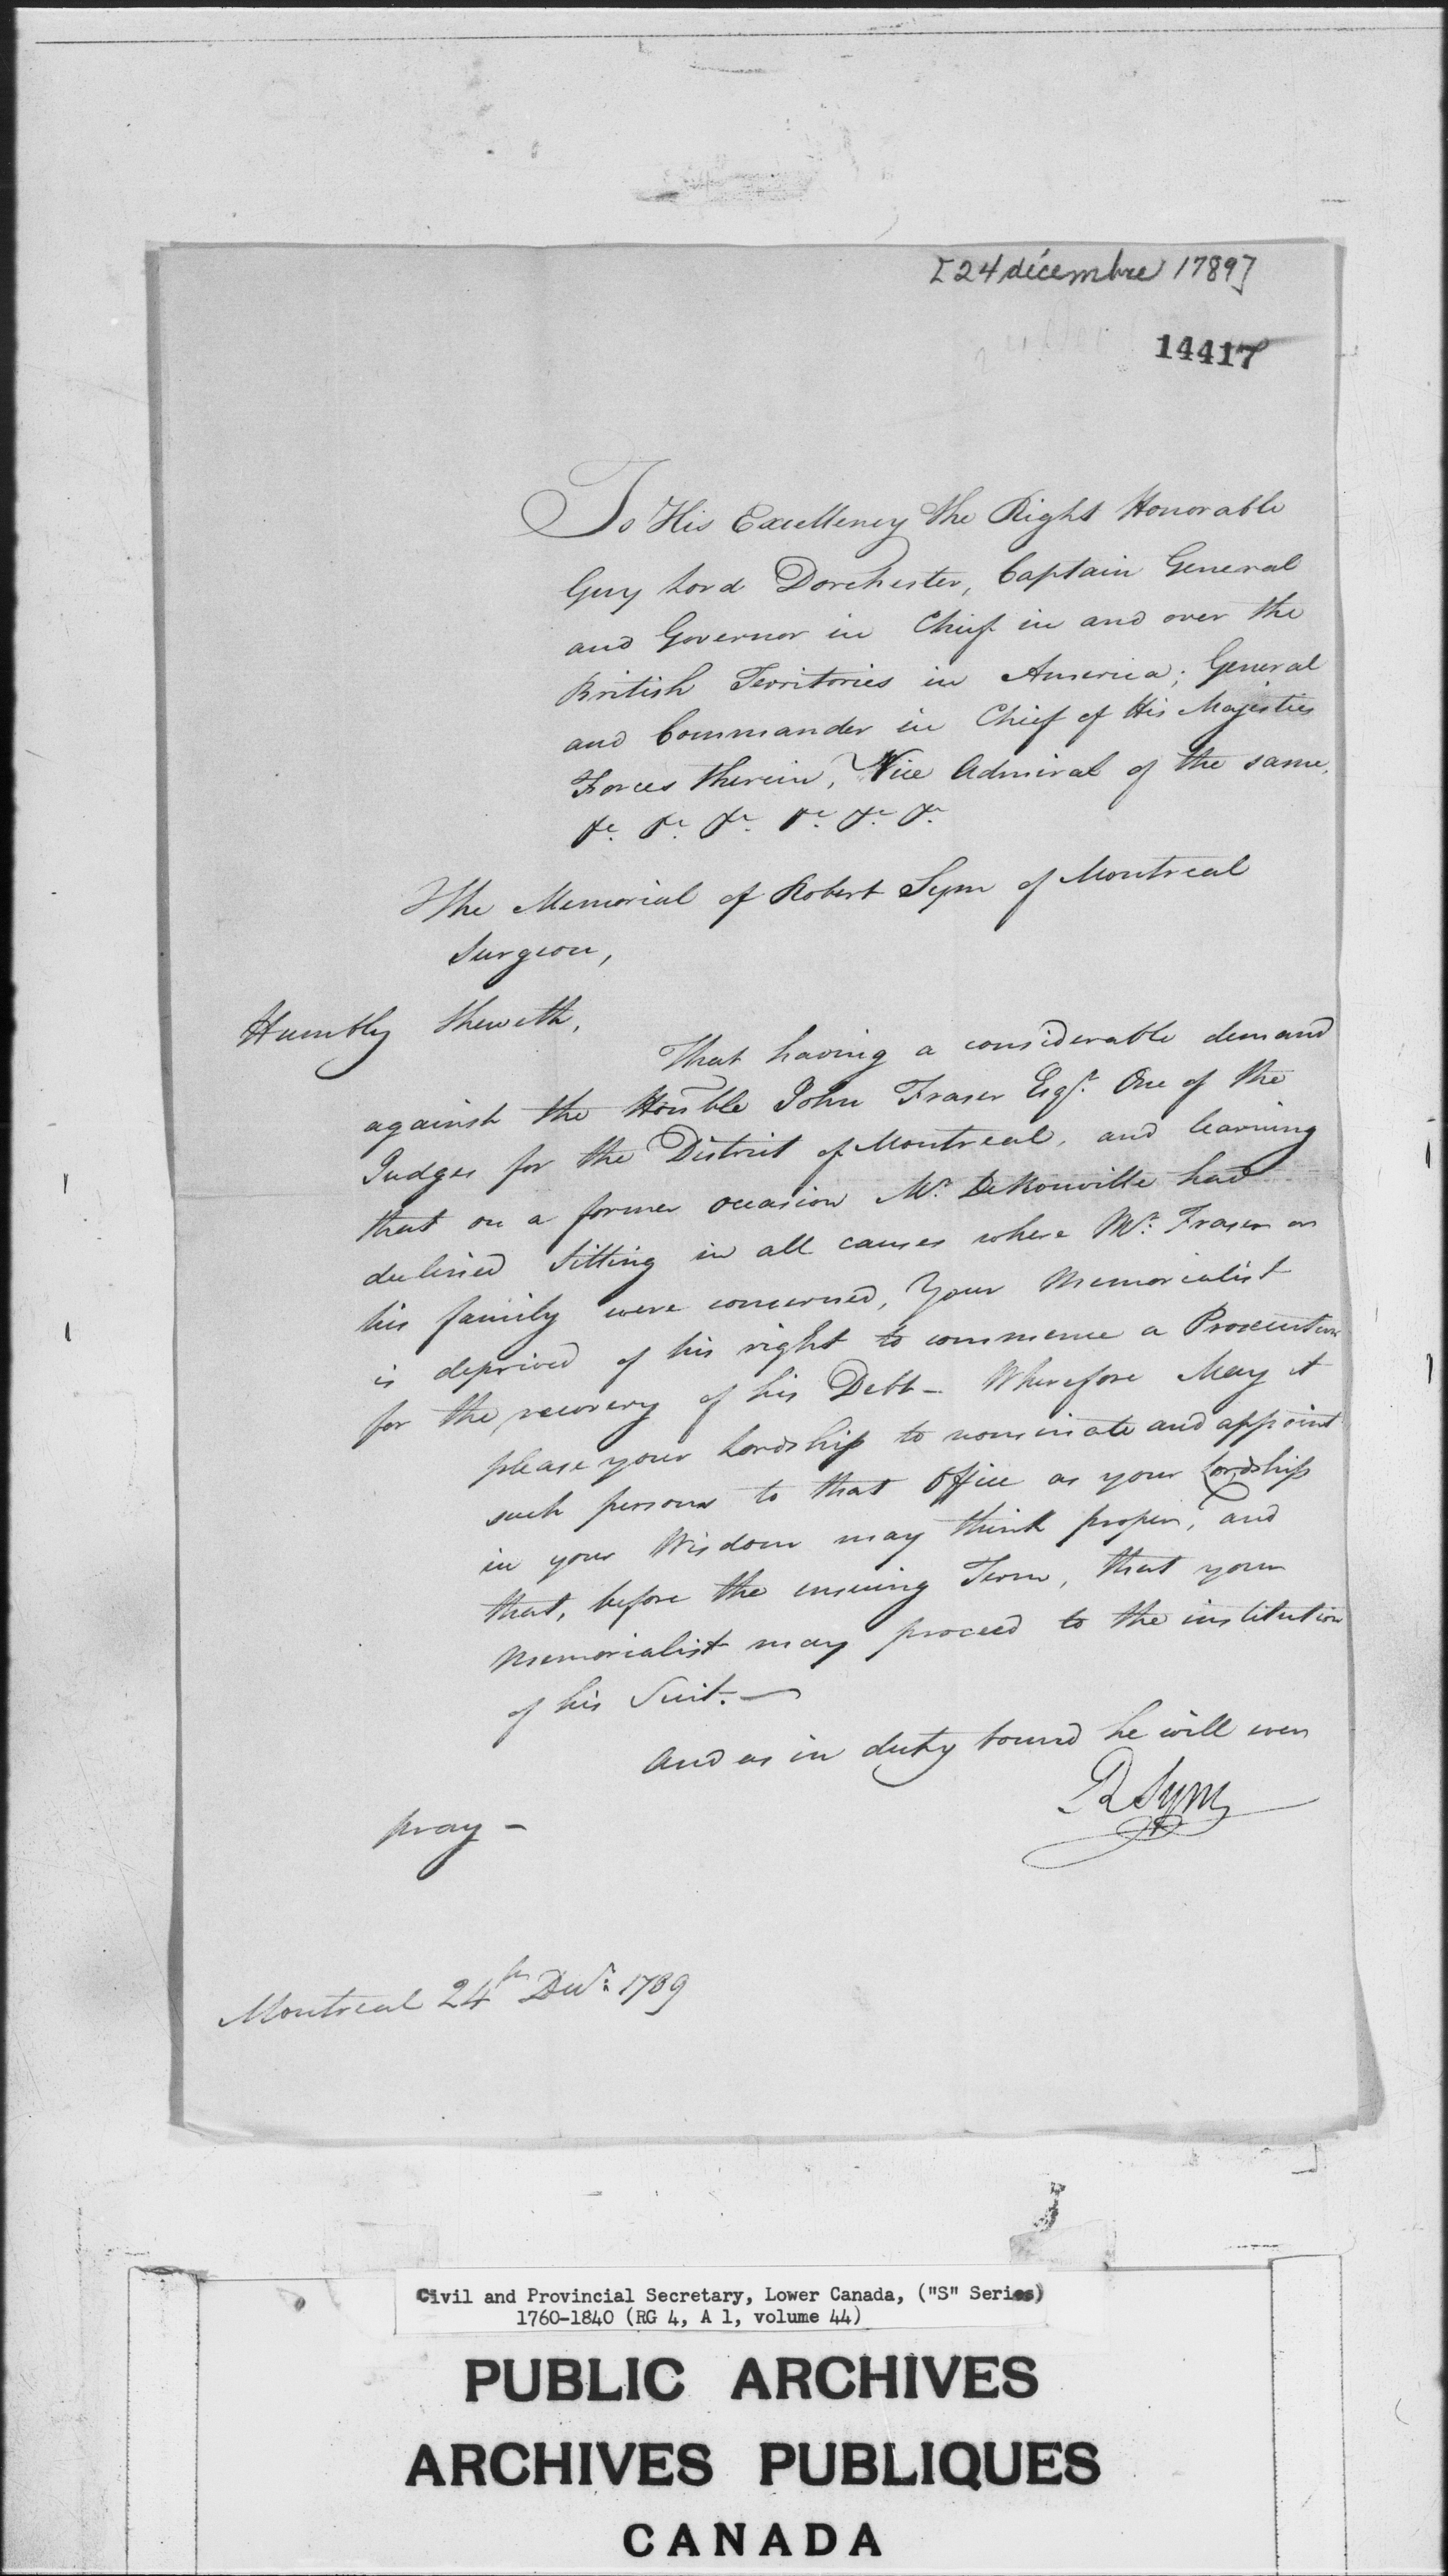 [24 décembre 1789]
14417
To His Excellency the Right Honorable
Guy Lord Dorchester, Captain General
and Governor in Chief in and over the
British Territories in America; General
and Commander in Chief of His Majesties
Forces therein, Vice Admiral of the same,
&c. &c. &c. &c. &c. &c.
The Memorial of Robert Sym of Montreal
Surgeon,
Humbly Sheweth,
That having a considerable demand
against the Honble John Fraser Esqr. One of the
Judges for the District of Montreal, and learning
that on a former occasion Mr. DeRouville had
declined Sitting in all causes where Mr. Fraser or
his family were concerned, Your Memorialist
is deprived of his right to commence a Prosecution
for the recovery of his Debt - Wherefore May it
please your Lordship to nominate and appoint
such persons to that Office as your Lordship
in your Wisdom may think proper, and
that, before the ensuing Term, that your
Memorialist may proceed to the institution
of his Suit. —
And as in duty bound he will ever
pray -
R Sym
Montreal 24th Decr. 1789
Civil and Provincial Secretary, Lower Canada, ("S" Series)
1760-1840 (RG 4, A 1, volume 44)
PUBLIC ARCHIVES
ARCHIVES PUBLIQUES
CANADA